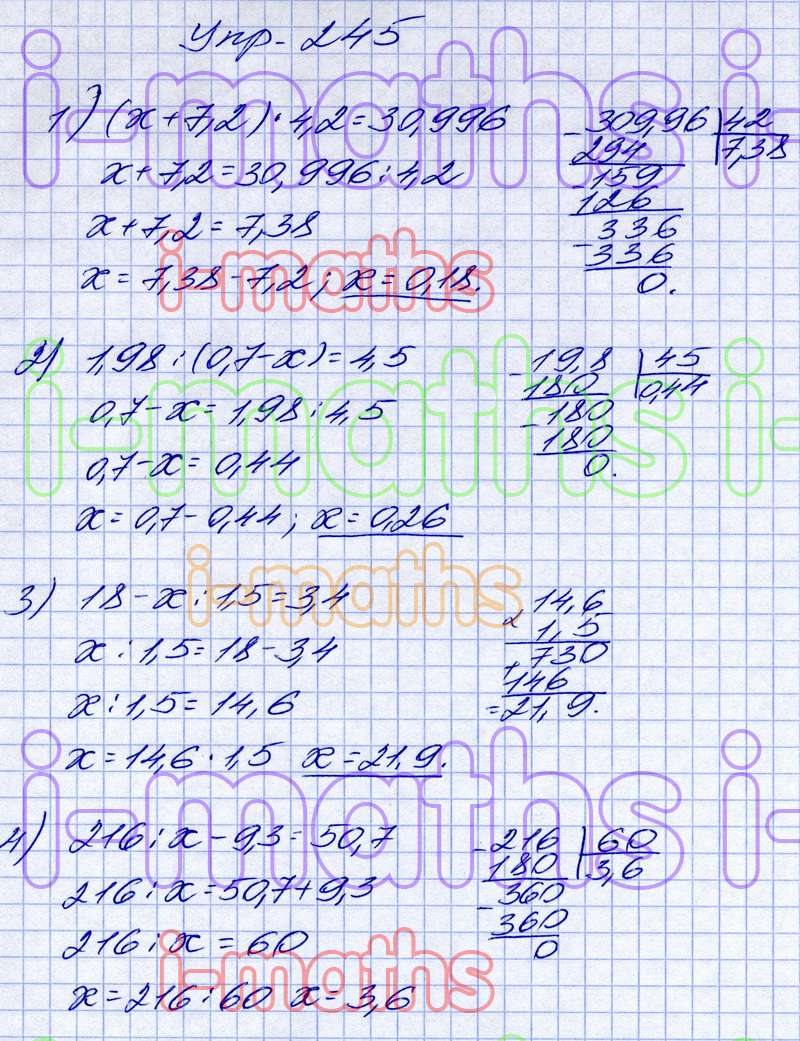 Упр- 245
1) (x+7,2)·4,2=30,996
x+7,2=30,996:4,2
x+7,2=7,38
x=7,38-7,2; x=0,18.
-309,96 42
294 7,38
-159
126
336
-336
0.
2) 1,98:(0,7-x)=4,5
0,7-x=1,98:4,5
0,7-x=0,44
x=0,7-0,44; x=0,26
-19,8 45
180 0,44
-180
180
0.
3) 18-x:1,5=3,4
x:1,5=18-3,4
x:1,5=14,6
x=14,6·1,5 x=21,9.
14,6
x 1,5
+730
146
=21,9.
4) 216:x-9,3=50,7
216:x=50,7+9,3
216:x=60
x=216:60 x=3,6
-216 60
180 3,6
-360
360
0
i-maths i-
i-maths
i-maths i-
i-maths
i-maths i-
i-maths